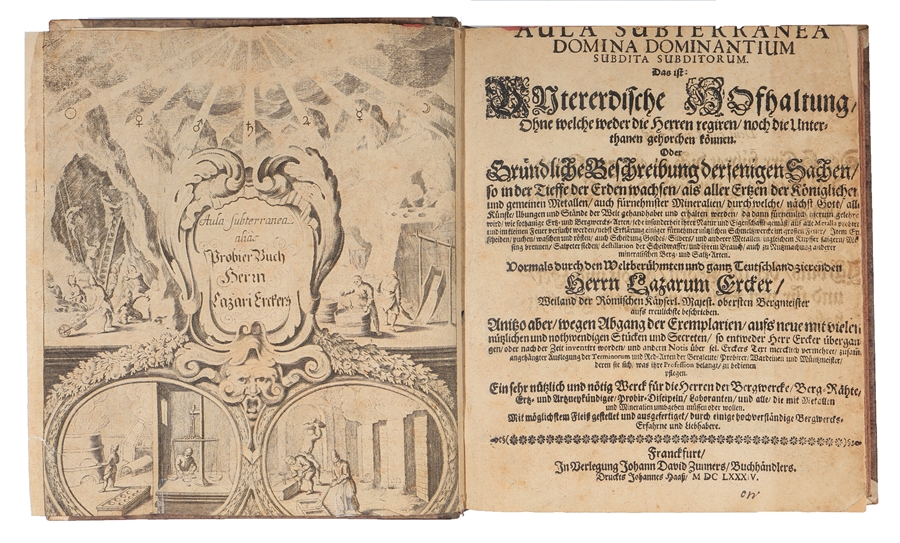 Aula subterranea
alias
Probier Buch
Herrn
Lazari Erckers
AULA SUBTERRANEA
DOMINA DOMINANTIUM
SUBDITA SUBDITORUM.
Das ist:
Untererdische Hofhaltung/
Ohne welche weder die Herren regiren/ noch die Unter-
thanen gehorchen können.
Oder
Gründliche Beschreibung derjenigen Sachen/
so in der Tieffe der Erden wachsen/ als aller Ertzen der Königlichen
und gemeinen Metallen/ auch fürnehmster Mineralien/ durch welche/ nächst Gott/ alle
Künste/ Ubungen und Stände der Welt gehandhabet und erhalten werden/ da dann fürnemlich hierinn gelehret
wird/ wie sothanige Ertz- und Bergwercks-Arten/ jede insonderheit ihrer Natur und Eigenschafft gemäß/ auf alle Metalla probirt
und im kleinen Feuer versucht werden/ nebst Erklärung einiger fürnehmer nützlichen Schmeltzwerck im großen Feuer/ Item Ertz
scheiden/ puchen/ waschen und rösten/ auch Scheidung Goldes/ Silbers/ und anderer Metallen/ ingleichem Kupffer saigern/ Mes-
sing brennen/ Salpeter sieden/ destillation der Scheidwasser/ und ihrem Brauch/ auch zu Nutzmachung anderer
mineralischen Berg- und Saltz-Arten.
Vormals durch den Weltberühmten und gantz Teutschland zierenden
Herrn Lazarum Ercker/
Weiland der Römischen Käyserl. Majest. obersten Bergmeister
aufs treulichste beschrieben.
Anitzo aber/ wegen Abgang der Exemplarien/ aufs neue mit vielen
nützlichen und nothwendigen Stücken und Secreten/ so entweder Herr Ercker übergan-
gen/ oder nach der Zeit inventirt worden/ und andern Notis über sel. Erckers Text mercklich vermehret/ zusamt
angehängter Auslegung der Terminorum und Red-Arten der Bergleute/ Probirer/ Wardeinen und Müntzmeister/
deren sie sich, was ihre Profession belangt/ zu bedienen
pflegen.
Ein sehr nützlich und nötig Werck für die Herren der Bergwercke/ Berg-Räthe,
Ertz- und Artzneykündiger/ Probir-Discipeln/ Laboranten/ und alle/ die mit Metallen
und Mineralien umbgehen müssen oder wollen.
Mit möglichstem Fleiß gestellet und ausgefertiget/ durch einige hochverständige Bergwercks-
Erfahrne und Liebhabere.
Franckfurt/
In Verlegung Johann David Zunners/ Buchhändlers.
Druckts Johannes Haaß/ M DC LXXXIV.